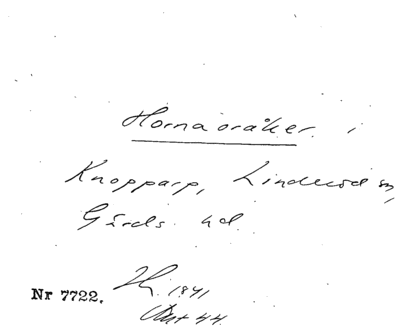 Hornaoråker. i
Knopparp, Linderöd sn,
Gärds hd.
Nr 7722.
1941
44.